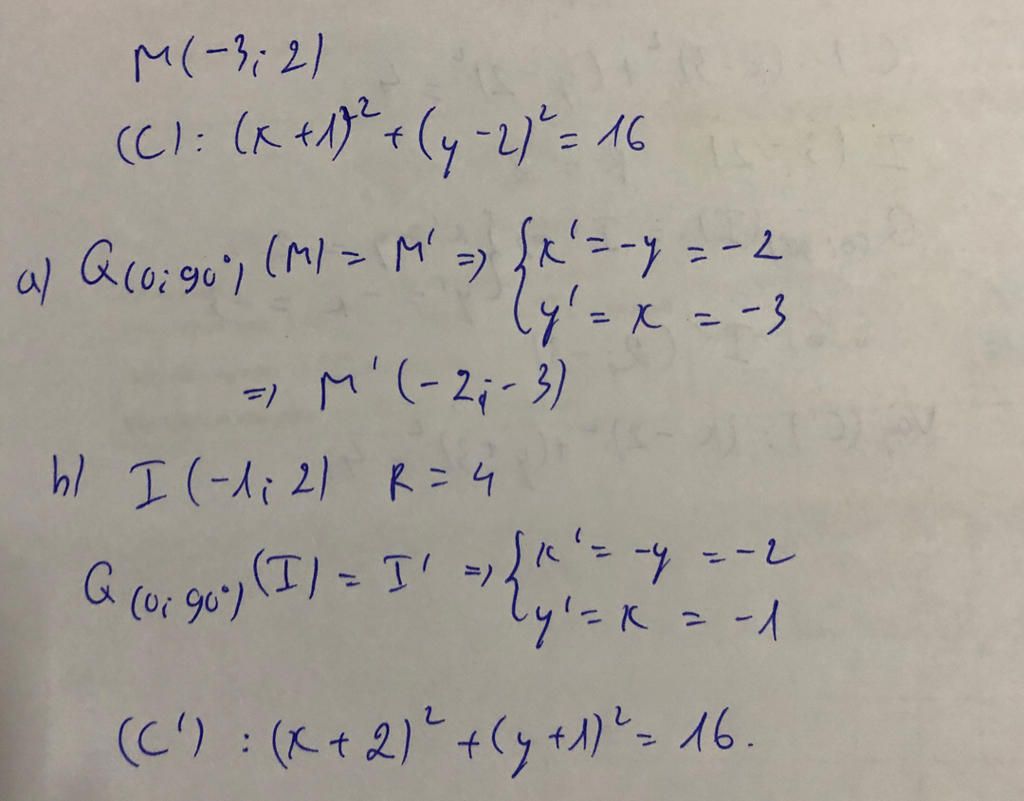 M(-3; 2)
(C): (x+1)² + (y-2)² = 16
a) Q(O; 90°) (M) = M' => { x' = -y = -2
y' = x = -3
=> M' (-2; -3)
b) I (-1; 2) R = 4
Q (O; 90°) (I) = I' => { x' = -y = -2
y' = x = -1
(C') : (x+2)² + (y+1)² = 16.